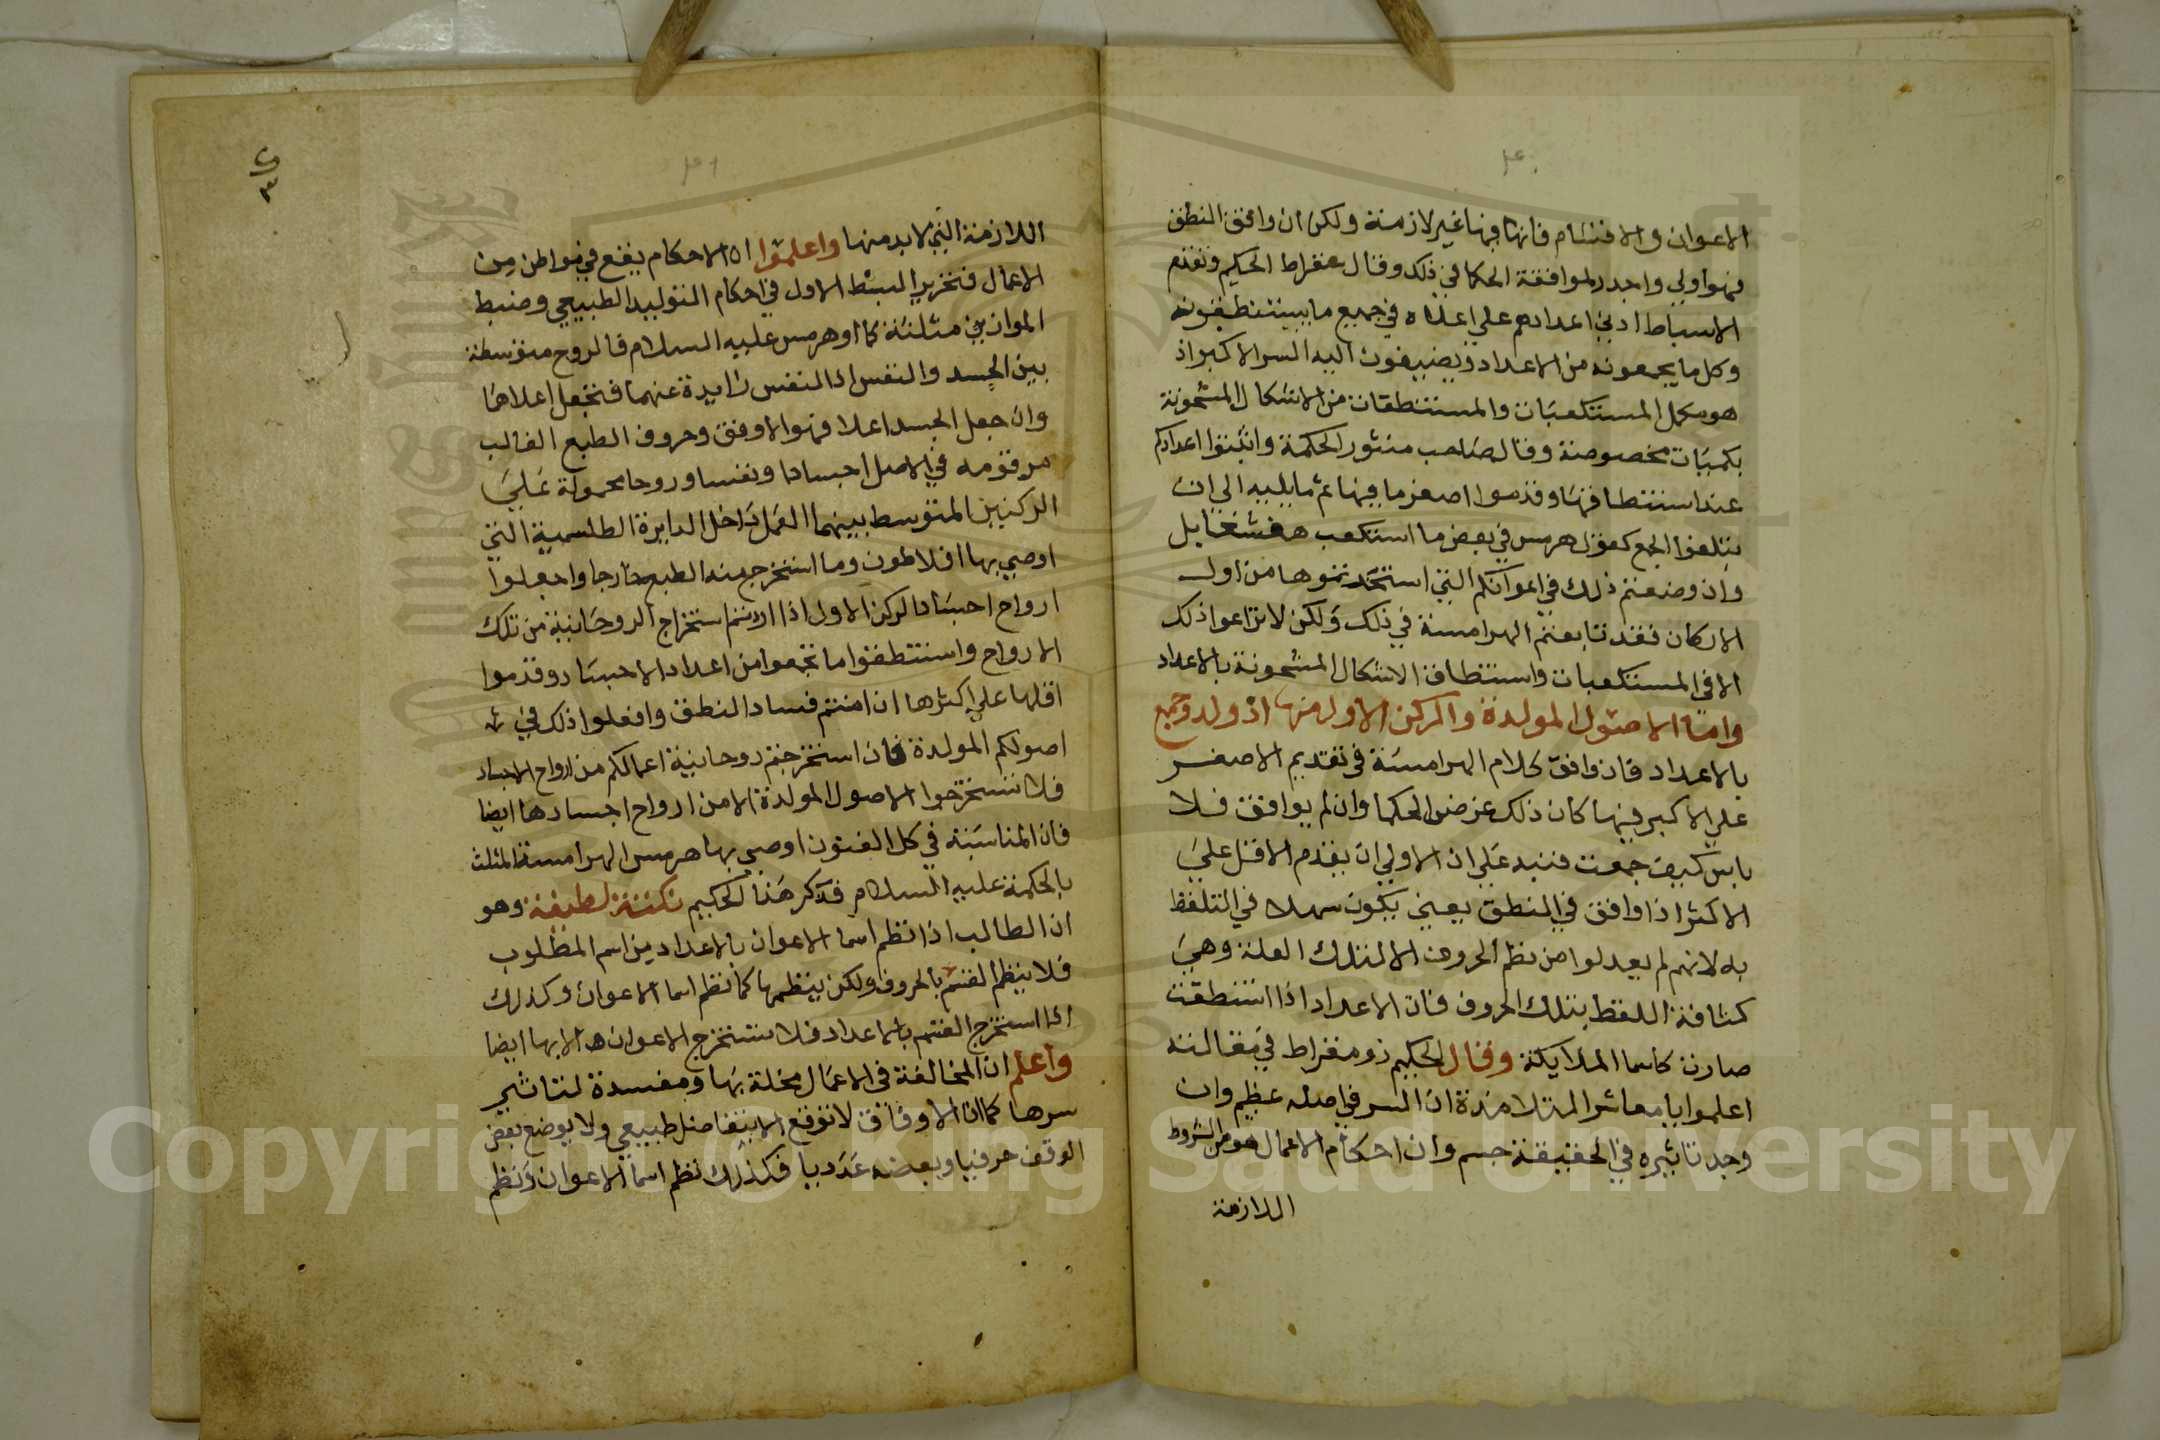 الاعوان والاقسام فانها فيها غير لازمة ولكن ان وافق النطق
فهو اولي واجدر لموافقة الحكما في ذلك وقال سقراط الحكيم وتقدم
الاسباط ادني اعدادهم علي اعلاه في جميع ما يستنطقونه
وكل ما يجمعونه من الاعداد ويضيفون اليه السر الاكبر اذ
هو مكمل المستكعبات والمستنطقات من الاشكال المشحونة
بكميات مخصوصة وقال صاحب منثور الحكمة واثبتوا اعدادكم
عند استنطاقها وقدموا اصغر ما فيها ثم ما يليه الي ان
يتلفوا الجمع كقول هرمس في بعض ما استكعب هفشغايل
وان وضعتم ذلك في اعوانكم التي استخدمتوها من اول
الاركان فقد تابعتم الهرامسة في ذلك ولكن لا تراعوا ذلك
الا في المستكعبات واستنطاق الاشكال المشحونة بالاعداد
واما الاصول المولدة والركن الاول منها اذ ولد وجمع
بالاعداد فان وافق كلام الهرامسة في تقديم الاصغر
علي الاكبر فيها كان ذلك غرض الحكما وان لم يوافق فلا
باس كيف جمعت فنبه علي ان الاولي ان يقدم الاقل علي
الاكثر اذا وافق في المنطق يعني يكون سهلا في التلفظ
به لانهم لم يعدلوا من نظم الحروف الا لتلك العلة وهي
كثافة اللفظ بتلك الحروف فان الاعداد اذا استنطقت
صارت كاسما الملايكة وقال الحكيم ذومقراط في مقالته
اعلموا يا معاشر التلامذة ان السر في اصله عظيم وان
وجد تاثيره في الحقيقة جسم وان احكام الاعمال هو من الشروط
اللازمة
اللازمة التي لا بد منها واعلموا ان الاحكام يقع في مواطن من
الاعمال فتحرير البسط الاول في احكام التوليد الطبيعي وضبط
الموازين مثلثة كما او هرمس عليه السلام فالروح متوسطة
بين الجسد والنفس اذ النفس زايدة عنهما فتجعل اعلاهما
وان جعل الجسد اعلا فهو الاوفق وحروف الطبع الغالب
مرقومه في الاصل اجسادا ونفسا وروحا محمولة علي
الركنين المتوسط بينهما العمل داخل الدايرة الطلسمية التي
اوصي بها افلاطون وما استخرج منه الطبع خارجا واجعلوا
ارواح اجساد الركن الاول اذا اردتم استخراج الروحانية من تلك
الارواح واستنطقوا ما تجمعوا من اعداد الاجساد وقدموا
اقلها علي اكثرها ان امنتم فساد النطق وافعلوا ذلك في
اصولكم المولدة فان استخرجتم روحانية اعمالكم من ارواح الاجساد
فلا تستخرجوا الاصول المولدة الا من ارواح اجسادها ايضا
فان المناسبة في كل الفنون اوصي بها هرمس الهرامسة المثلث
بالحكمة عليه السلام فذكر هذا الحكيم نكتة لطيفة وهو
ان الطالب اذا نظم اسما الاعوان بالاعداد من اسم المطلوب
فلا ينظم القسم بالحروف ولكن ينظمها كما نظم اسما الاعوان وكذلك
اذا استخرج القسم بالاعداد فلا تستخرج الاعوان الا بها ايضا
واعلم ان المخالفة في الاعمال مخلة بها ومفسدة لتاثير
سرها كما ان الاوفاق لا توقع الا بتفاضل طبيعي ولا يوضع بعض
الوفق حرفيا وبعضه عدديا فكذلك نظم اسما الاعوان ونظم
Copyright © King Saud University